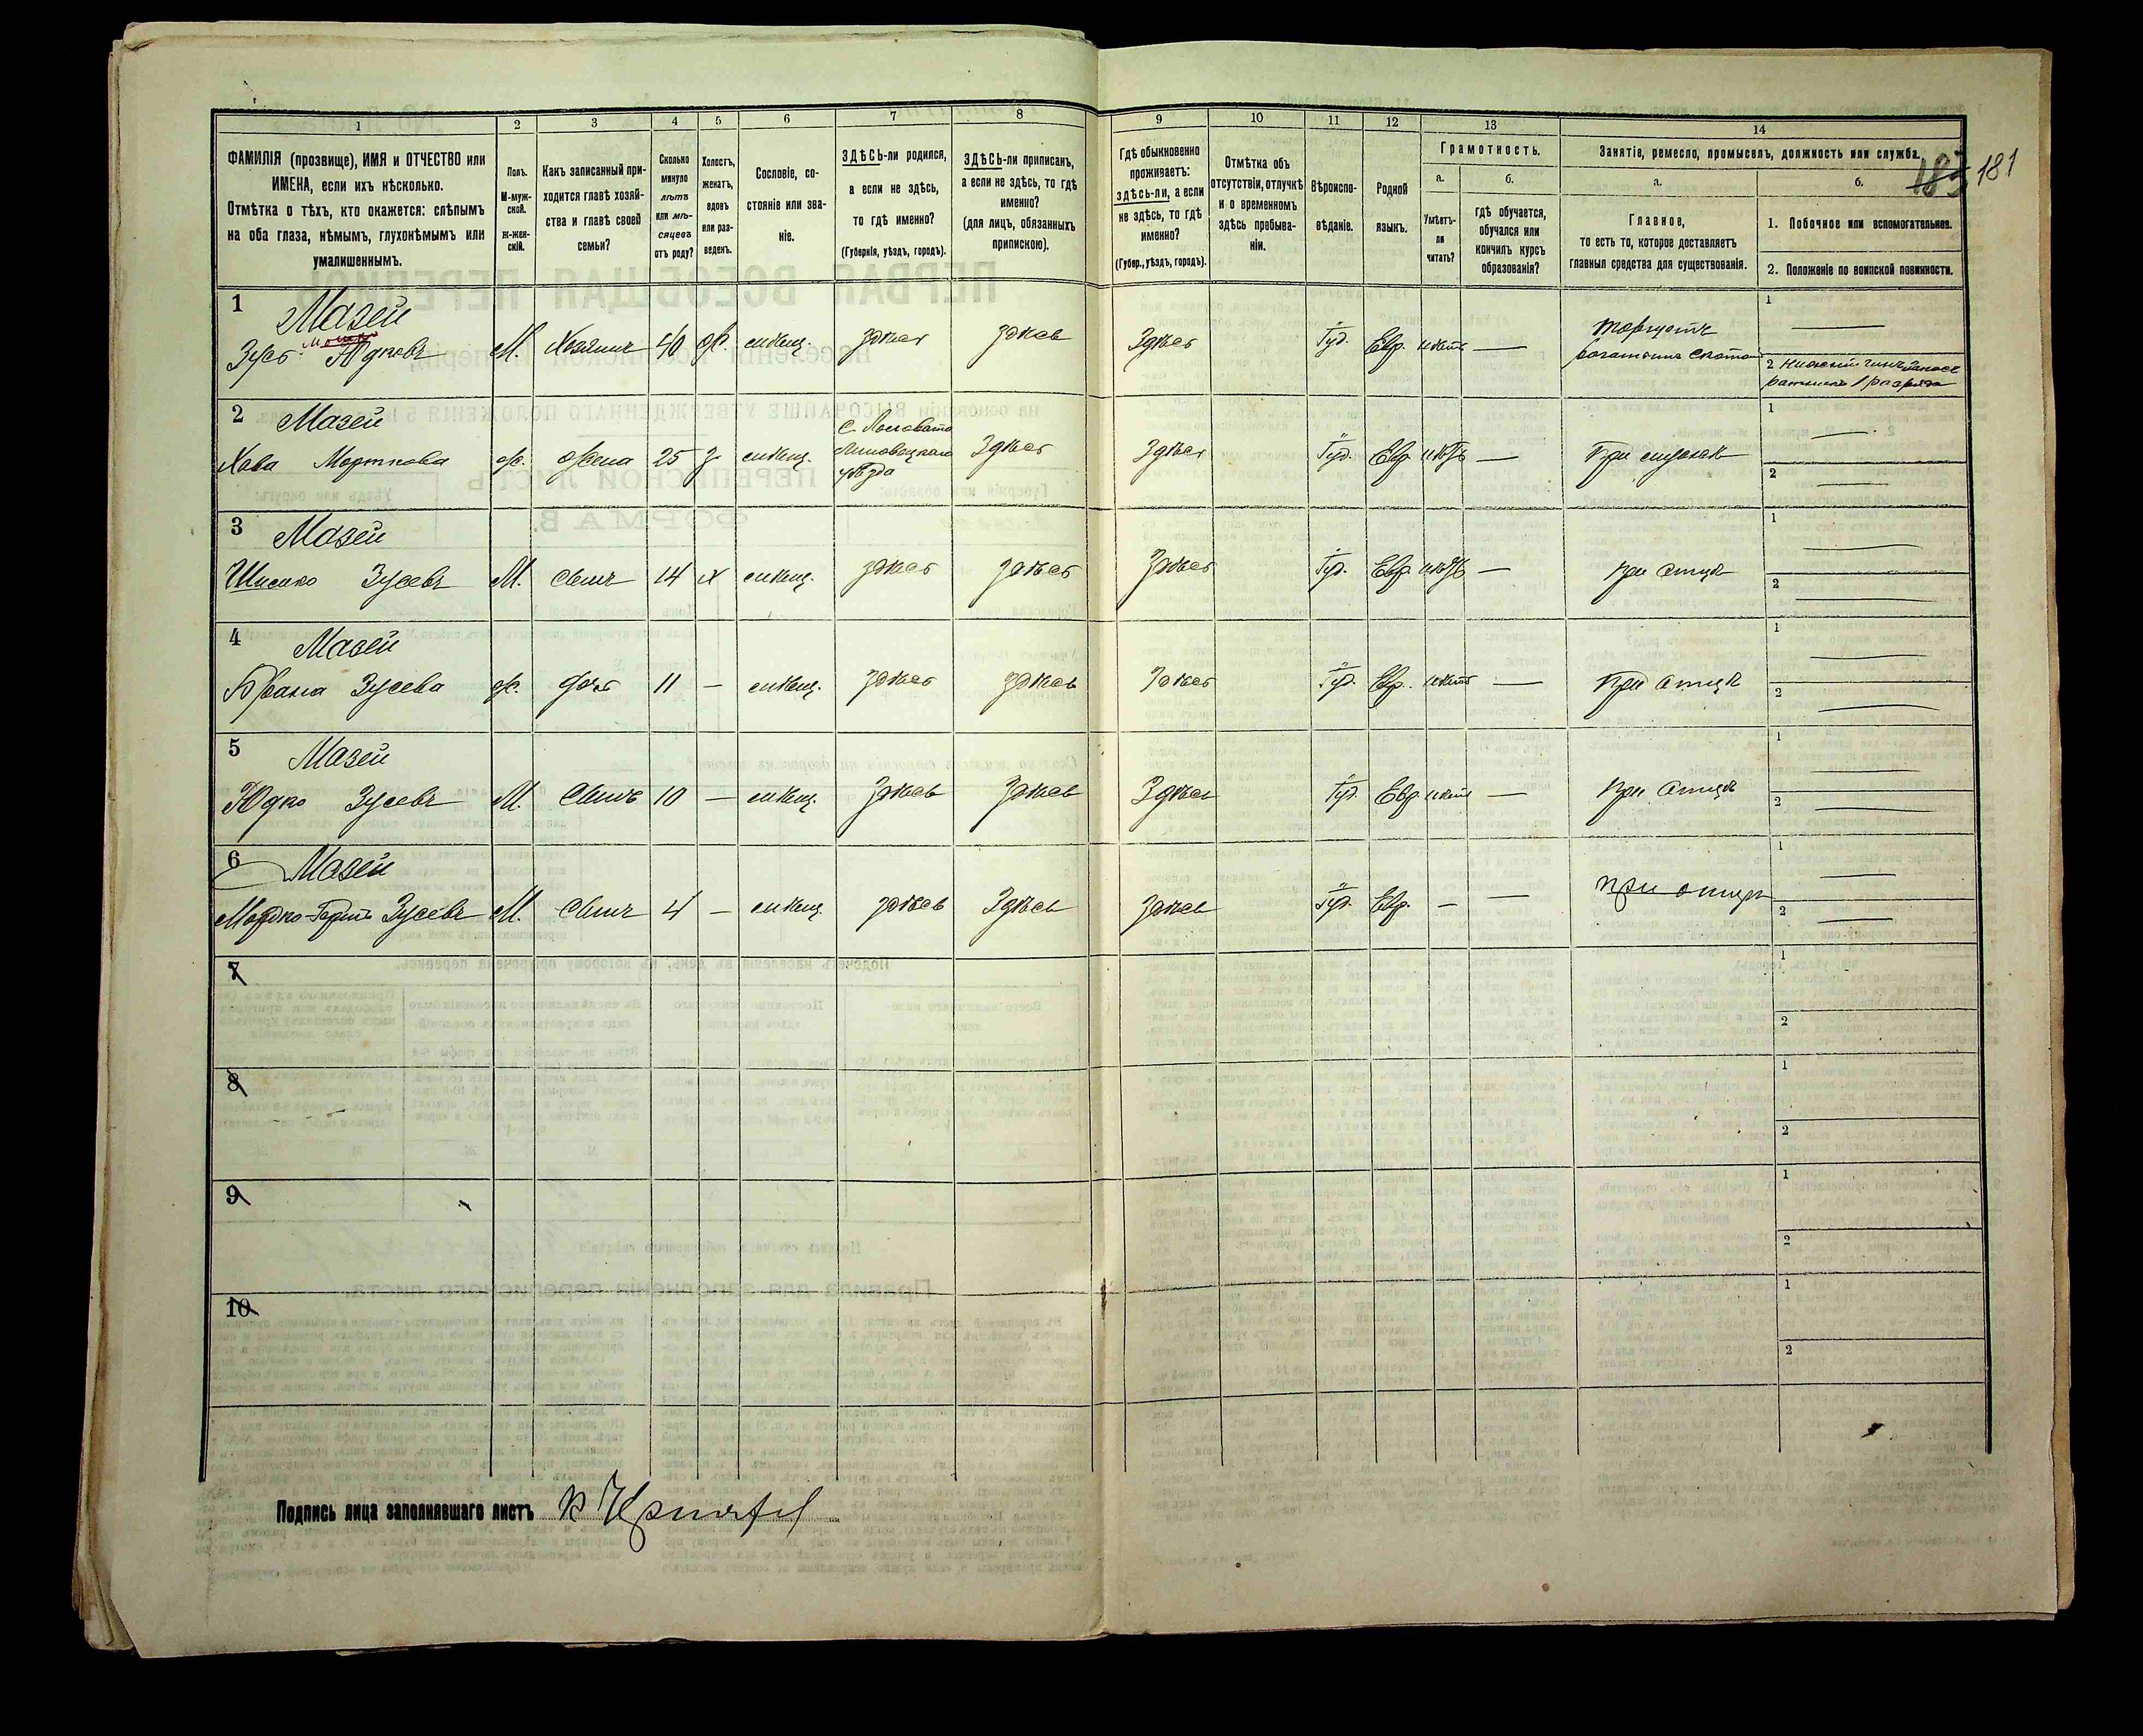 183 181
1
2
3
4
5
6
7
8
9
10
11
12
13
14
ФАМИЛІЯ (прозвище), ИМЯ и ОТЧЕСТВО или
ИМЕНА, если ихъ нѣсколько.
Отмѣтка о тѣхъ, кто окажется: слѣпымъ
на оба глаза, нѣмымъ, глухонѣмымъ или
умалишеннымъ.
Полъ.
М-муж-
ской.
ж-жен-
скій.
Какъ записанный при-
ходится главѣ хозяй-
ства и главѣ своей
семьи?
Сколько
минуло
лѣтъ
или мѣ-
сяцевъ
отъ роду?
Холостъ,
женатъ,
вдовъ
или раз-
веденъ.
Сословіе, со-
стояніе или зва-
ніе.
ЗДѢСЬ-ли родился,
а если не здѣсь,
то гдѣ именно?
(Губернія, уѣздъ, городъ).
ЗДѢСЬ-ли приписанъ,
а если не здѣсь, то гдѣ
именно?
(для лицъ, обязанныхъ
припискою).
Гдѣ обыкновенно
проживаетъ:
здѣсь-ли, а если
не здѣсь, то гдѣ
именно?
(Губер., уѣздъ, городъ).
Отмѣтка объ
отсутствіи, отлучкѣ
и о временномъ
здѣсь пребыва-
ніи.
Вѣроиспо-
вѣданіе.
Родной
языкъ.
Грамотность.
а.
Умѣетъ-
ли
читать?
б.
гдѣ обучается,
обучался или
кончилъ курсъ
образованія?
Занятіе, ремесло, промыселъ, должность или служба.
а.
Главное,
то есть то, которое доставляетъ
главныя средства для существованія.
б.
1. Побочное или вспомогательное.
2. Положеніе по воинской повинности.
1 Мазей
Зусь Юдковъ М. Хозяинъ 40 ж. мѣщ. здѣсь здѣсь Здѣсь Іуд. Евр. умѣетъ — торгуетъ
рогатымъ скотомъ
1 —
2
2 Мазей
Хава Морткова ж. жена 25 з. мѣщ.
уѣзда
Здѣсь Здѣсь Іуд. Евр. умѣетъ — При мужѣ
1 —
2 —
3 Мазей
Зусевъ М. сынъ 14 х мѣщ. здѣсь здѣсь Здѣсь Іуд. Евр. умѣетъ — при отцѣ
1 —
2 —
4 Мазей
Зусева ж. дочь 11 — мѣщ. здѣсь здѣсь Здѣсь Іуд. Евр. умѣетъ — при отцѣ
1 —
2 —
5 Мазей
Юдко Зусевъ М. Сынъ 10 — мѣщ. Здѣсь Здѣсь Здѣсь Іуд. Евр. умѣетъ — при отцѣ
1 —
2 —
6 Мазей
Зусевъ М. Сынъ 4 — мѣщ. здѣсь Здѣсь здѣсь Іуд. Евр. — — при отцѣ
1 —
2 —
7
1
2
8
1
2
9
1
2
10
1
2
Подпись лица заполнявшаго листъ